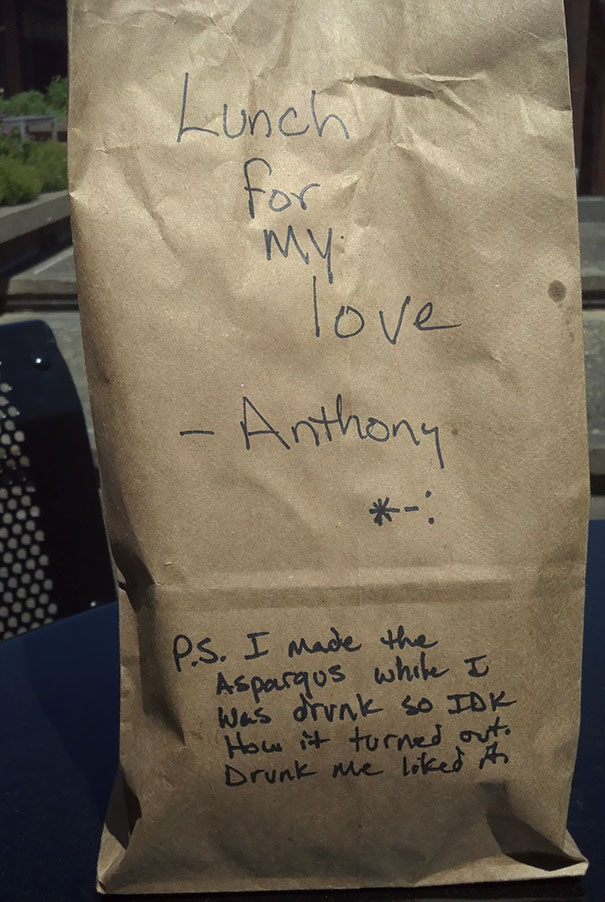 Lunch
for
my
love
- Anthony
*-:
P.S. I made the
Aspargus while I
was drunk so IDK
How it turned out.
Drunk me liked it